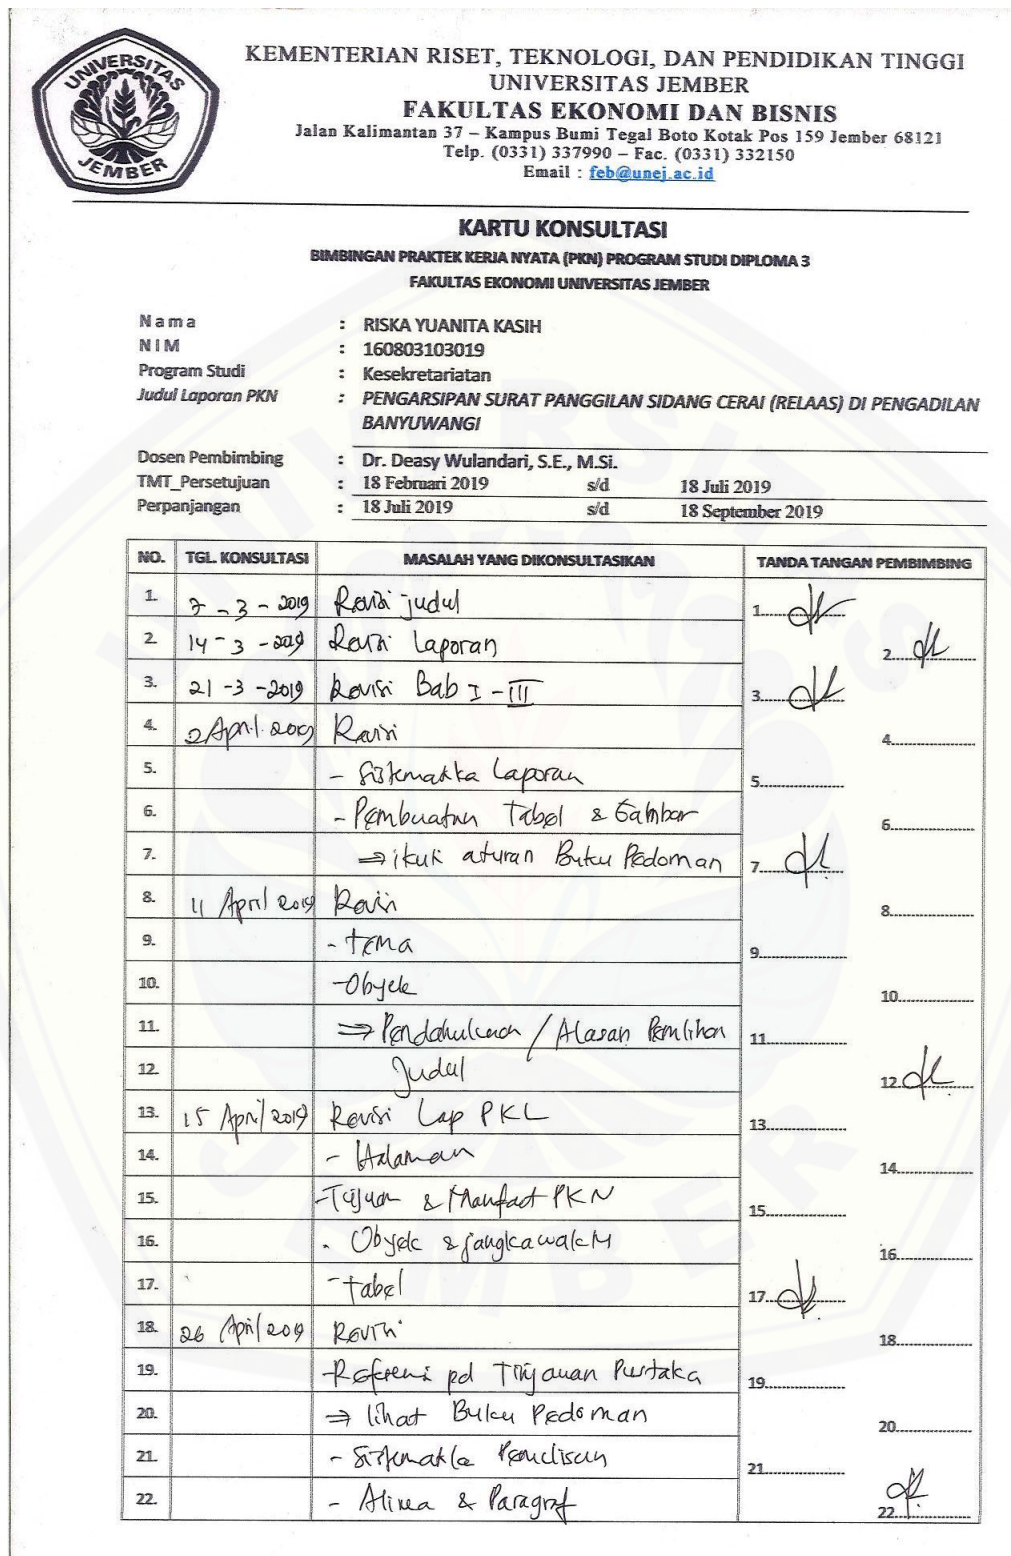 UNIVERSITAS
JEMBER
KEMENTERIAN RISET, TEKNOLOGI, DAN PENDIDIKAN TINGGI
UNIVERSITAS JEMBER
FAKULTAS EKONOMI DAN BISNIS
Jalan Kalimantan 37 – Kampus Bumi Tegal Boto Kotak Pos 159 Jember 68121
Telp. (0331) 337990 – Fac. (0331) 332150
Email : feb@unej.ac.id
KARTU KONSULTASI
BIMBINGAN PRAKTEK KERJA NYATA (PKN) PROGRAM STUDI DIPLOMA 3
FAKULTAS EKONOMI UNIVERSITAS JEMBER
Nama : RISKA YUANITA KASIH
NIM : 160803103019
Program Studi : Kesekretariatan
Judul Laporan PKN : PENGARSIPAN SURAT PANGGILAN SIDANG CERAI (RELAAS) DI PENGADILAN
BANYUWANGI
Dosen Pembimbing : Dr. Deasy Wulandari, S.E., M.Si.
TMT_Persetujuan : 18 Februari 2019 s/d 18 Juli 2019
Perpanjangan : 18 Juli 2019 s/d 18 September 2019
NO. TGL. KONSULTASI MASALAH YANG DIKONSULTASIKAN TANDA TANGAN PEMBIMBING
1. 7 - 3 - 2019 Revisi judul 1.
2. 14 - 3 - 2019 Revisi Laporan 2.
3. 21 - 3 - 2019 Revisi Bab I - III 3.
4. 2 April 2019 Revisi 4.
5. - Sistematika Laporan 5.
6. - Pembuatan Tabel & Gambar 6.
7. ⇒ ikuti aturan Buku Pedoman 7.
8. 11 April 2019 Revisi 8.
9. - tema 9.
10. - Obyek 10.
11. ⇒ Pendahuluan / Alasan Pemilihan 11.
12. Judul 12.
13. 15 April 2019 Revisi Lap PKL 13.
14. - Halaman 14.
15. - Tujuan & Manfaat PKN 15.
16. - Obyek & jangka waktu 16.
17. - tabel 17.
18. 26 April 2019 Revisi 18.
19. - Referensi pd Tinjauan Pustaka 19.
20. ⇒ lihat Buku Pedoman 20.
21. - Sistematika Penulisan 21.
22. - Alinea & Paragraf 22.